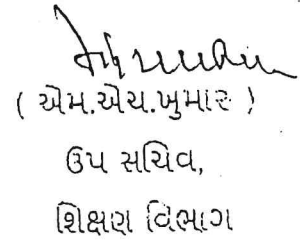 ( એમ.એચ.ખુમાર )
ઉપ સચિવ,
શિક્ષણ વિભાગ